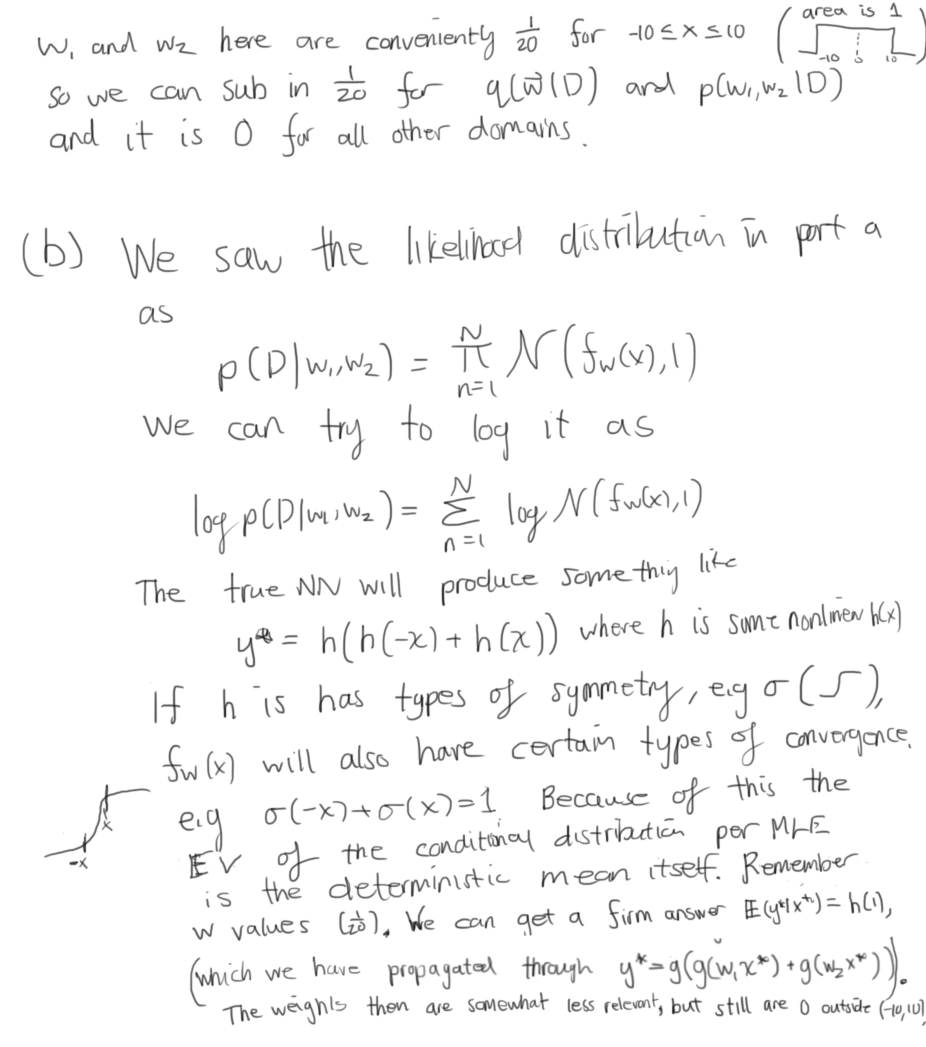 w₁ and w₂ here are conveniently 1/20 for -10 ≤ x ≤ 10 (area is 1 -10 0 10)
so we can sub in 1/20 for q(w⃗|D) and p(w₁,w₂|D)
and it is 0 for all other domains.
(b) We saw the likelihood distribution in part a
as
p(D|w₁,w₂) = ∏_{n=1}^{N} N(f_w(x),1)
We can try to log it as
log p(D|w₁,w₂) = Σ_{n=1}^{N} log N(f_w(x),1)
The true NN will produce something like
y* = h(h(-x) + h(x)) where h is some nonlinear h(x)
If h is has types of symmetry, e.g σ (∫),
f_w(x) will also have certain types of convergence.
e.g σ(-x)+σ(x)=1 Because of this the
-x x
EV of the conditional distribution per MLE
is the deterministic mean itself. Remember
w values (1/20). We can get a firm answer 𝔼(y*|x*) = h(1),
(which we have propagated through y* = g(g(w₁x*) + g(w₂x*))).
The weights then are somewhat less relevant, but still are 0 outside (-10,10)